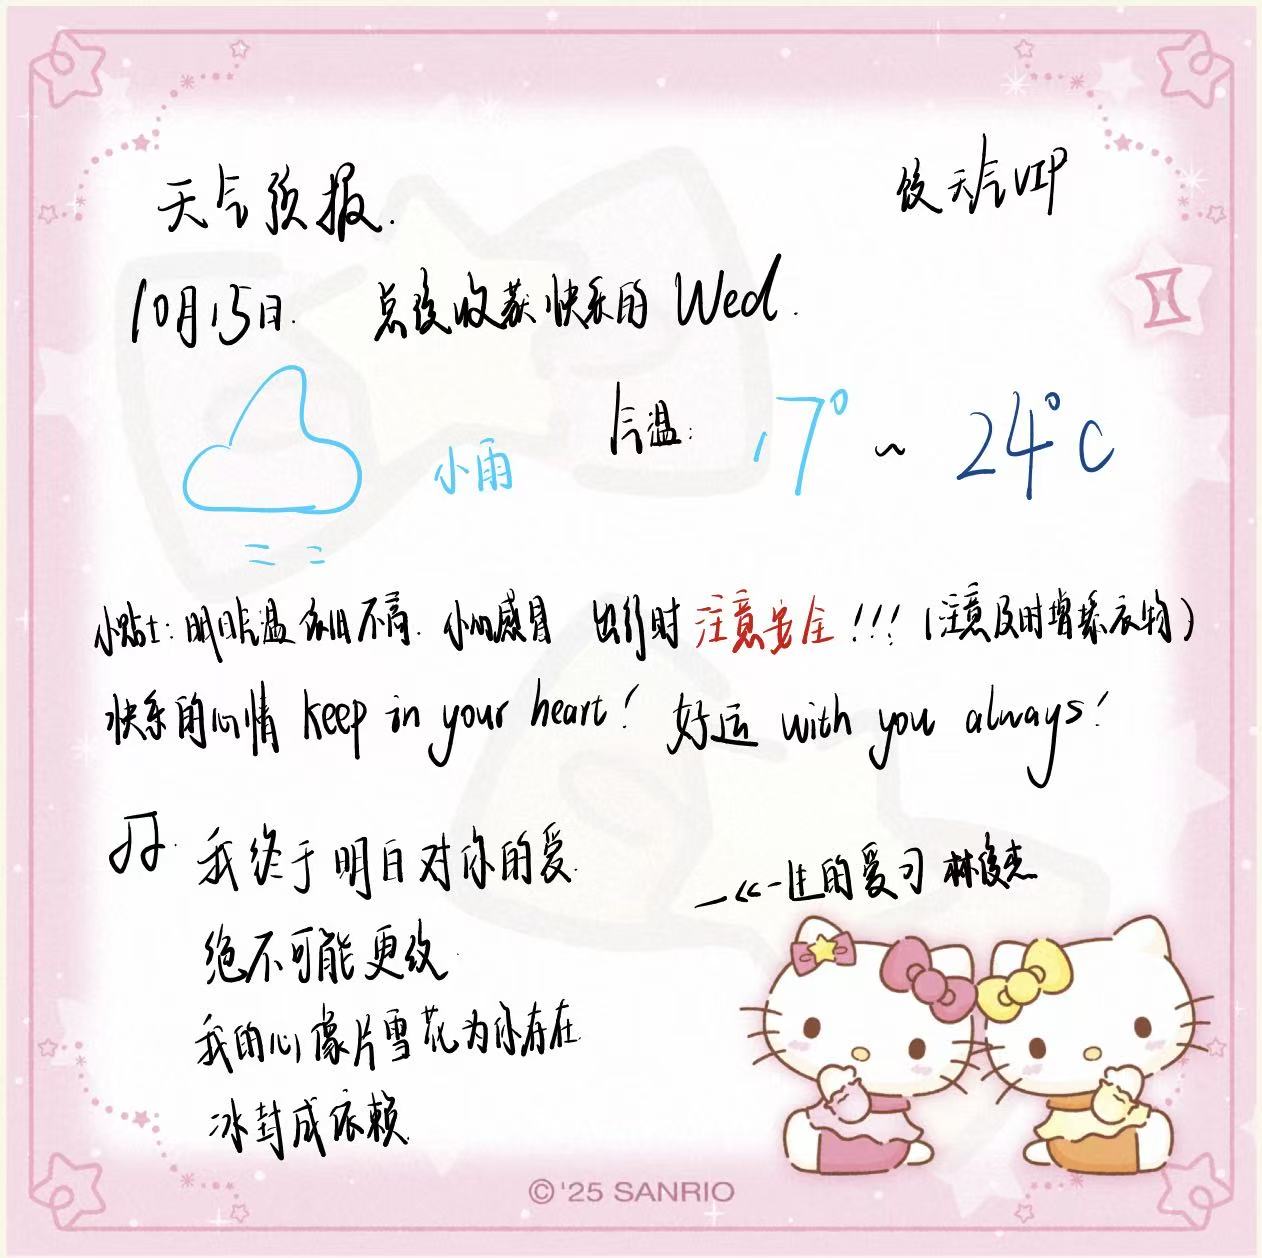 天气预报.
饺天气VIP
10月15日. 总该收获快乐的 Wed.
小雨 气温: 17° ~ 24°C
小贴士: 明日气温依旧不高. 小心感冒 出行时 注意安全!!! (注意及时增添衣物)
快乐的心情 keep in your heart! 好运 with you always!
我终于明白对你的爱.
—<<一生的爱》林俊杰
绝不可能更改
我的心像片雪花为你存在.
冰封成依赖.
©'25 SANRIO